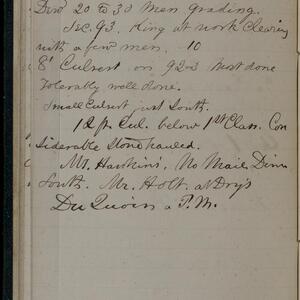 Div 20 to 30 Men grading.
Sec. 93. King at work Clearing
with a few men. 10
8' Culvert on 923 Most done
Tolerably well done.
Small Culvert just South.
12 ft Cul. below 1st Class. Con
siderable Stone hauled.
Mr. Hawkins. No Mail. Dinn
South. Mr. Holt at Dry's
Du Quoin a P.M.